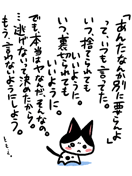 「あんたなんか別に要さんよ」
って、いつも言ってた。
いつ、捨てられても
いいように。
いつ、裏切られても
いいように。
でも、本当はヤなんだ、そんなの。
…逃げないって決めたから。
もう、言わないようにしよう。